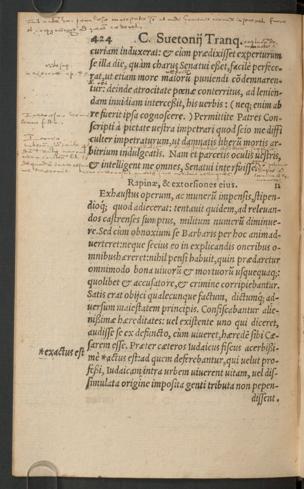 424 C. Suetonij Tranq.
curiam induxerat: & cùm prædixisset experturum
se illa die, quàm charus Senatui esset, facilè perfece-
rat, ut etiam more maiorũ puniendi cõdemnaren-
tur: deinde atrocitate pœnæ conterritus, ad lenien-
dam inuidiam intercessit, his uerbis: (neq; enim ab
re fuerit ipsa cognoscere.) Permittite Patres Con-
scripti à pietate uestra impetrari quod scio me diffi
culter impetraturum, ut damnatis liberũ mortis ar-
bitrium indulgeatis. Nam et parcetis oculis uestris,
& intelligent me omnes, Senatui interfuisse.
Rapinæ, & extorsiones eius. 12
Exhaustus operum, ac munerũ impensis, stipen-
dioq; quod adiecerat: tentauit quidem, ad releuan-
dos castrenses sumptus, militum numerũ diminue-
re. Sed cùm obnoxium se Barbaris per hoc animad-
uerteret: neque secius eo in explicandis oneribus o-
mnibus hæreret: nihil pensi habuit, quin prædaretur
omnimodo bona uiuorũ & mortuorũ usquequaq;:
quolibet & accusatore, & crimine corripiebantur.
Satis erat obijci qualecunque factum, dictumq; ad-
uersum maiestatem principis. Confiscabantur alie-
nissimæ hæreditates: uel existente uno qui diceret,
audisse se ex defuncto, cùm uiueret, hæredẽ sibi Cæ-
sarem esse. Præter cæteros Iudaicus fiscus acerbissi-
*exactus est
mè *actus est: ad quem deferebantur, qui uelut pro-
fessi, Iudaicam intra urbem uiuerent uitam, uel dis-
simulata origine imposita genti tributa non pepen-
dissent.